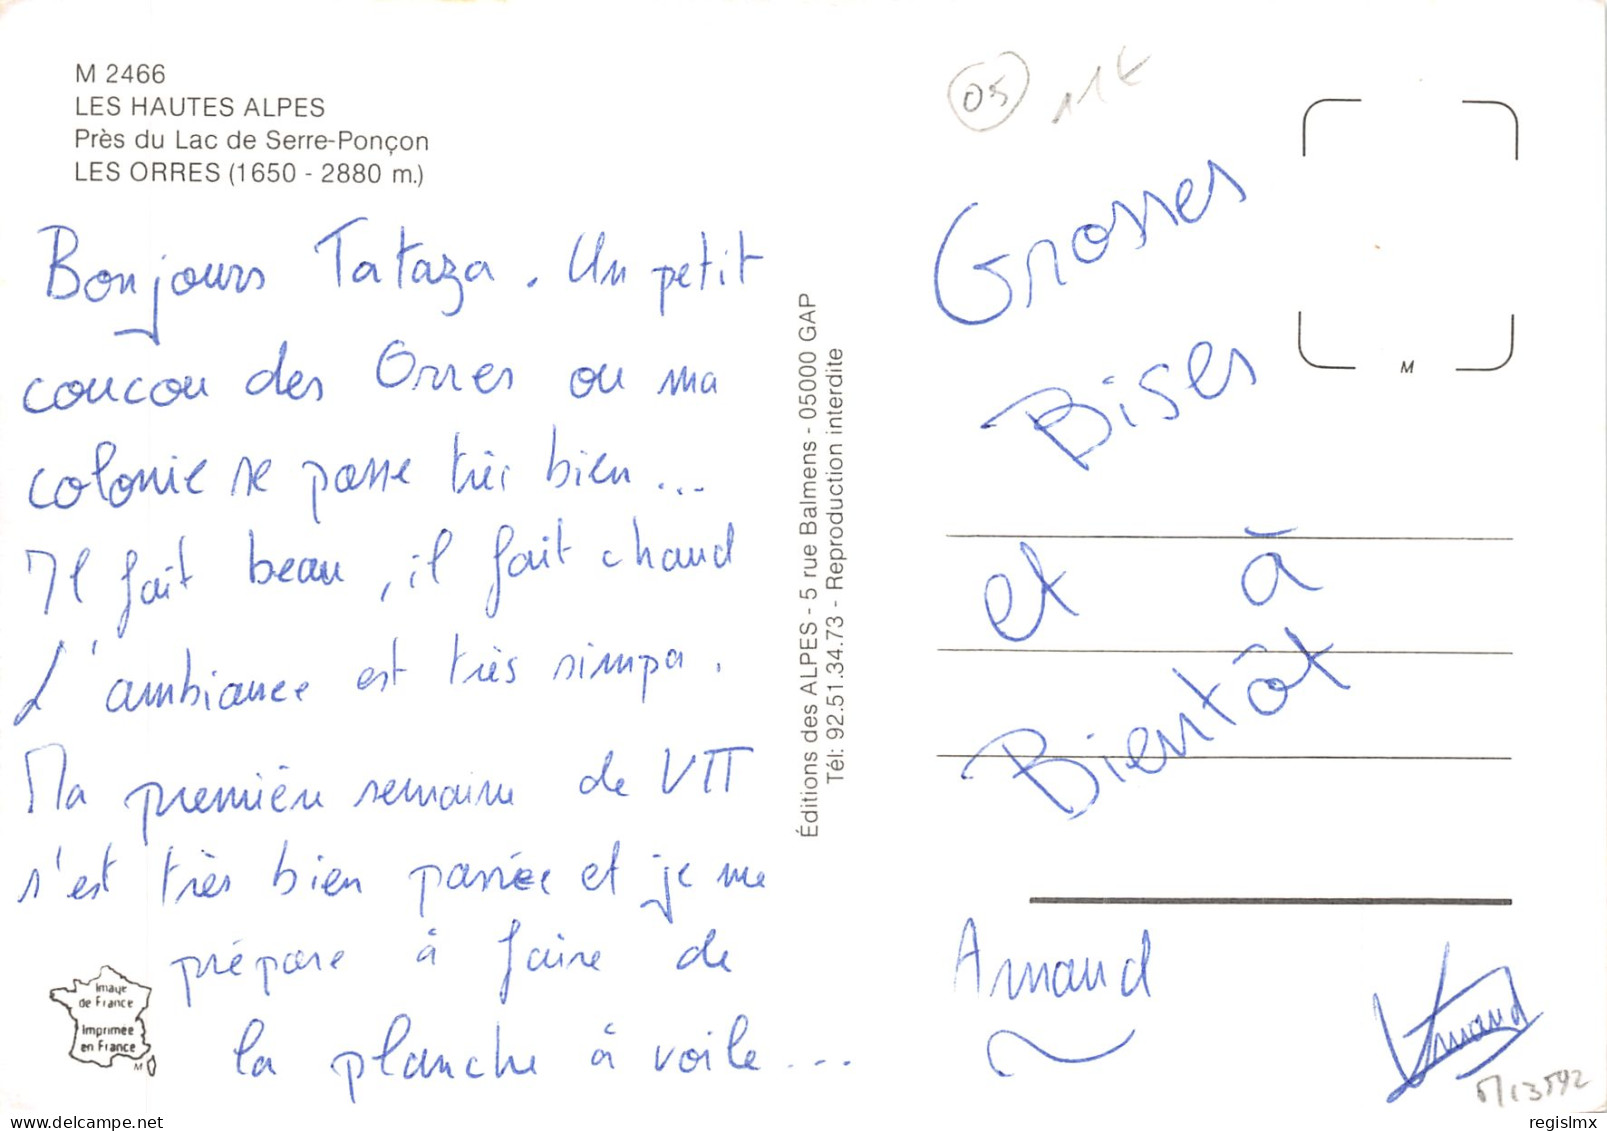 M 2466
LES HAUTES ALPES
Près du Lac de Serre-Ponçon
LES ORRES (1650 - 2880 m.)
Bonjours Tataza. Un petit
coucou des Orres ou ma
colonie se passe très bien...
Il fait beau, il fait chaud
L'ambiance est très simpa.
Ma première semaine de VTT
s'est très bien passée et je me
prépare à faire de
la planche à voile...
Image
de France
Imprimée
en France
M
Éditions des ALPES - 5 rue Balmens - 05000 GAP
Tél: 92.51.34.73 - Reproduction interdite
05
M
Grosses
Bises
et à
Bientôt
Arnaud
Arnaud
regislmx